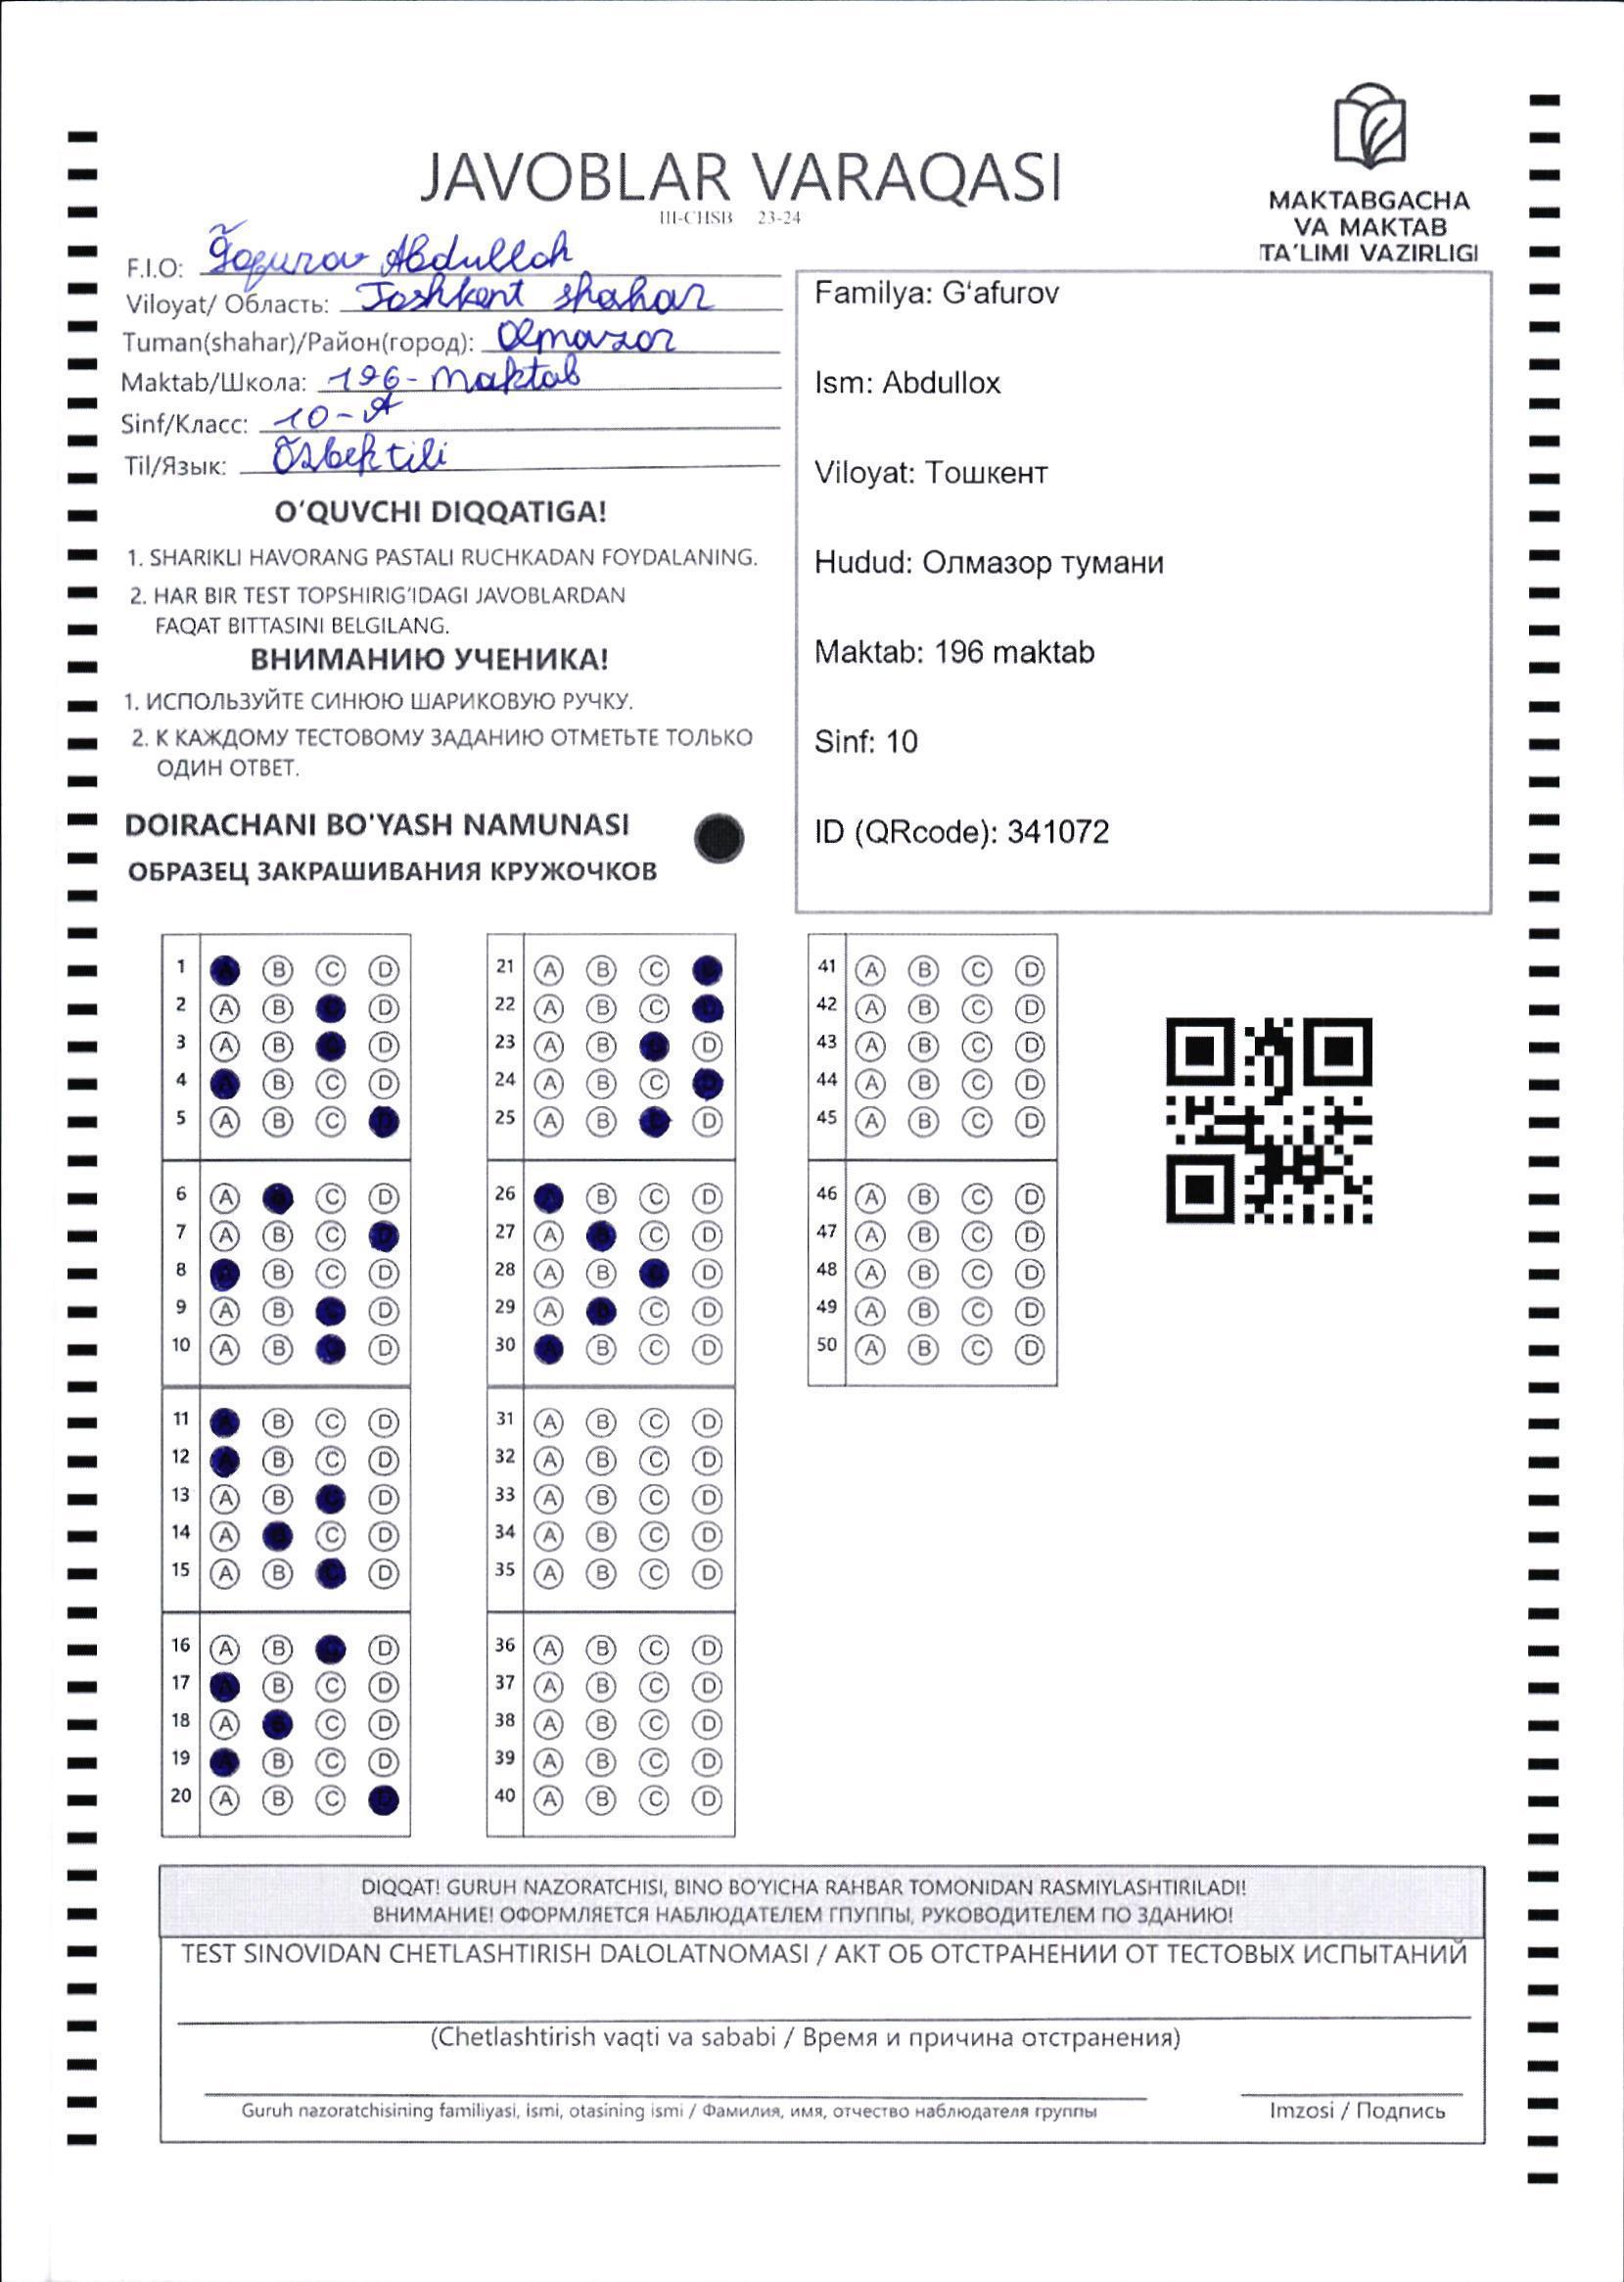 JAVOBLAR VARAQASI
III-CHSB 23-24
MAKTABGACHA
VA MAKTAB
TA'LIMI VAZIRLIGI
F.I.O: Ğofurov Abdulloh
Viloyat/ Область: Toshkent shahar
Tuman(shahar)/Район(город): Olmazor
Maktab/Школа: 196-maktab
Sinf/Класс: 10-A
Til/Язык: Õzbek tili
O'QUVCHI DIQQATIGA!
1. SHARIKLI HAVORANG PASTALI RUCHKADAN FOYDALANING.
2. HAR BIR TEST TOPSHIRIG'IDAGI JAVOBLARDAN
FAQAT BITTASINI BELGILANG.
ВНИМАНИЮ УЧЕНИКА!
1. ИСПОЛЬЗУЙТЕ СИНЮЮ ШАРИКОВУЮ РУЧКУ.
2. К КАЖДОМУ ТЕСТОВОМУ ЗАДАНИЮ ОТМЕТЬТЕ ТОЛЬКО
ОДИН ОТВЕТ.
DOIRACHANI BO'YASH NAMUNASI
ОБРАЗЕЦ ЗАКРАШИВАНИЯ КРУЖОЧКОВ
Familya: G‘afurov
Ism: Abdullox
Viloyat: Тошкент
Hudud: Олмазор тумани
Maktab: 196 maktab
Sinf: 10
ID (QRcode): 341072
1 A B C D
2 A B C D
3 A B C D
4 A B C D
5 A B C D
6 A B C D
7 A B C D
8 A B C D
9 A B C D
10 A B C D
11 A B C D
12 A B C D
13 A B C D
14 A B C D
15 A B C D
16 A B C D
17 A B C D
18 A B C D
19 A B C D
20 A B C D
21 A B C D
22 A B C D
23 A B C D
24 A B C D
25 A B C D
26 A B C D
27 A B C D
28 A B C D
29 A B C D
30 A B C D
31 A B C D
32 A B C D
33 A B C D
34 A B C D
35 A B C D
36 A B C D
37 A B C D
38 A B C D
39 A B C D
40 A B C D
41 A B C D
42 A B C D
43 A B C D
44 A B C D
45 A B C D
46 A B C D
47 A B C D
48 A B C D
49 A B C D
50 A B C D
DIQQAT! GURUH NAZORATCHISI, BINO BO'YICHA RAHBAR TOMONIDAN RASMIYLASHTIRILADI!
ВНИМАНИЕ! ОФОРМЛЯЕТСЯ НАБЛЮДАТЕЛЕМ ГПУППЫ, РУКОВОДИТЕЛЕМ ПО ЗДАНИЮ!
TEST SINOVIDAN CHETLASHTIRISH DALOLATNOMASI / АКТ ОБ ОТСТРАНЕНИИ ОТ ТЕСТОВЫХ ИСПЫТАНИЙ
(Chetlashtirish vaqti va sababi / Время и причина отстранения)
Guruh nazoratchisining familiyasi, ismi, otasining ismi / Фамилия, имя, отчество наблюдателя группы
Imzosi / Подпись